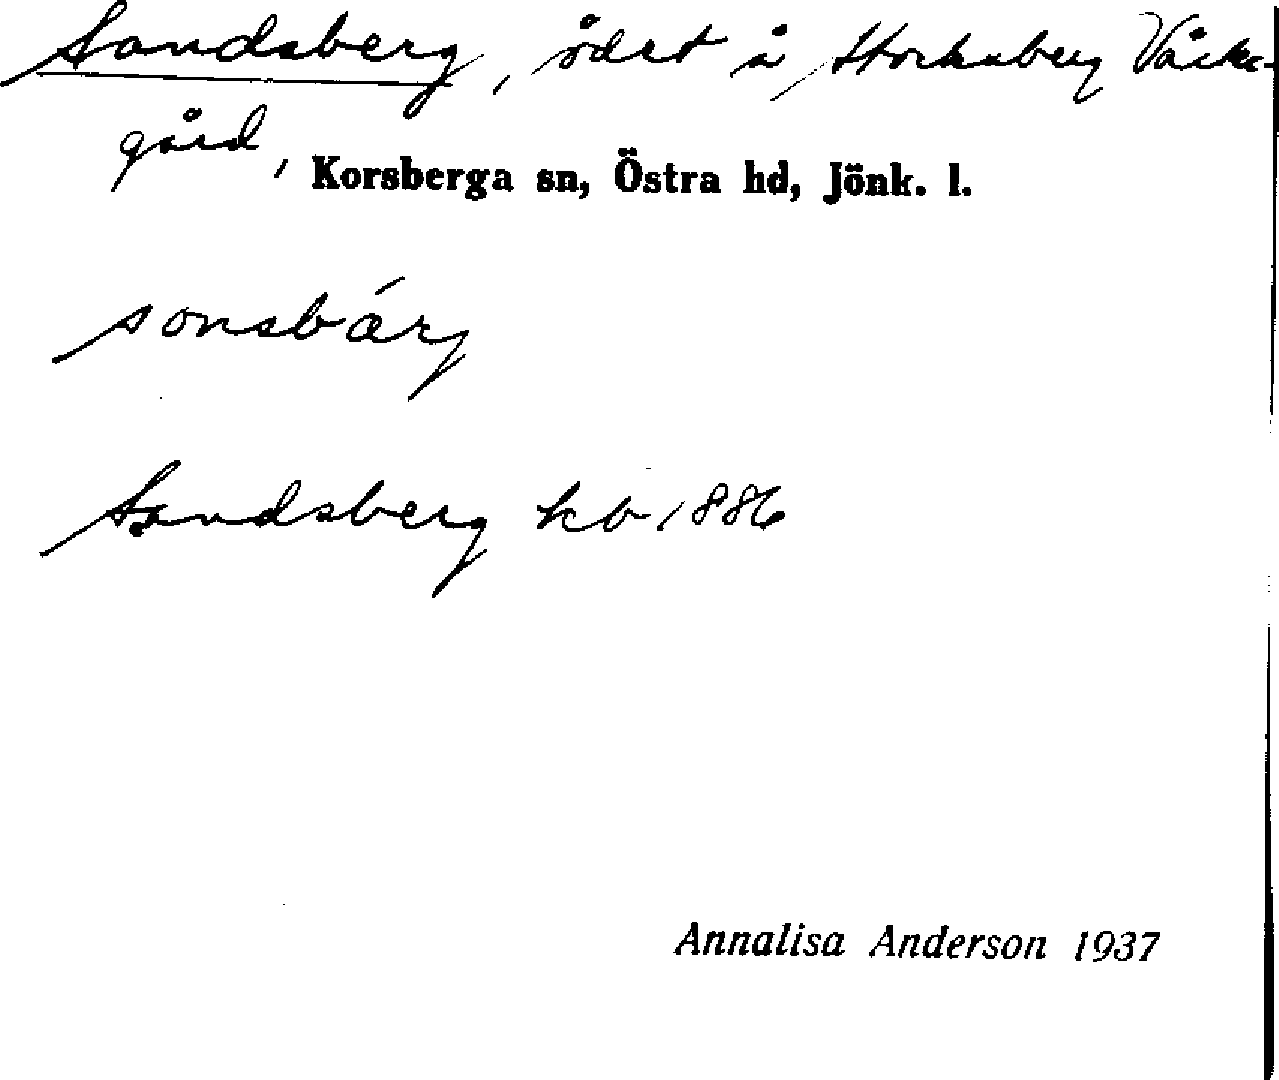 Sandsberg, ödet å Storkaberg
gård, Korsberga sn, Östra hd, Jönk. l.
sonsbárg
Sandsberg kb 1886
Annalisa Anderson 1937